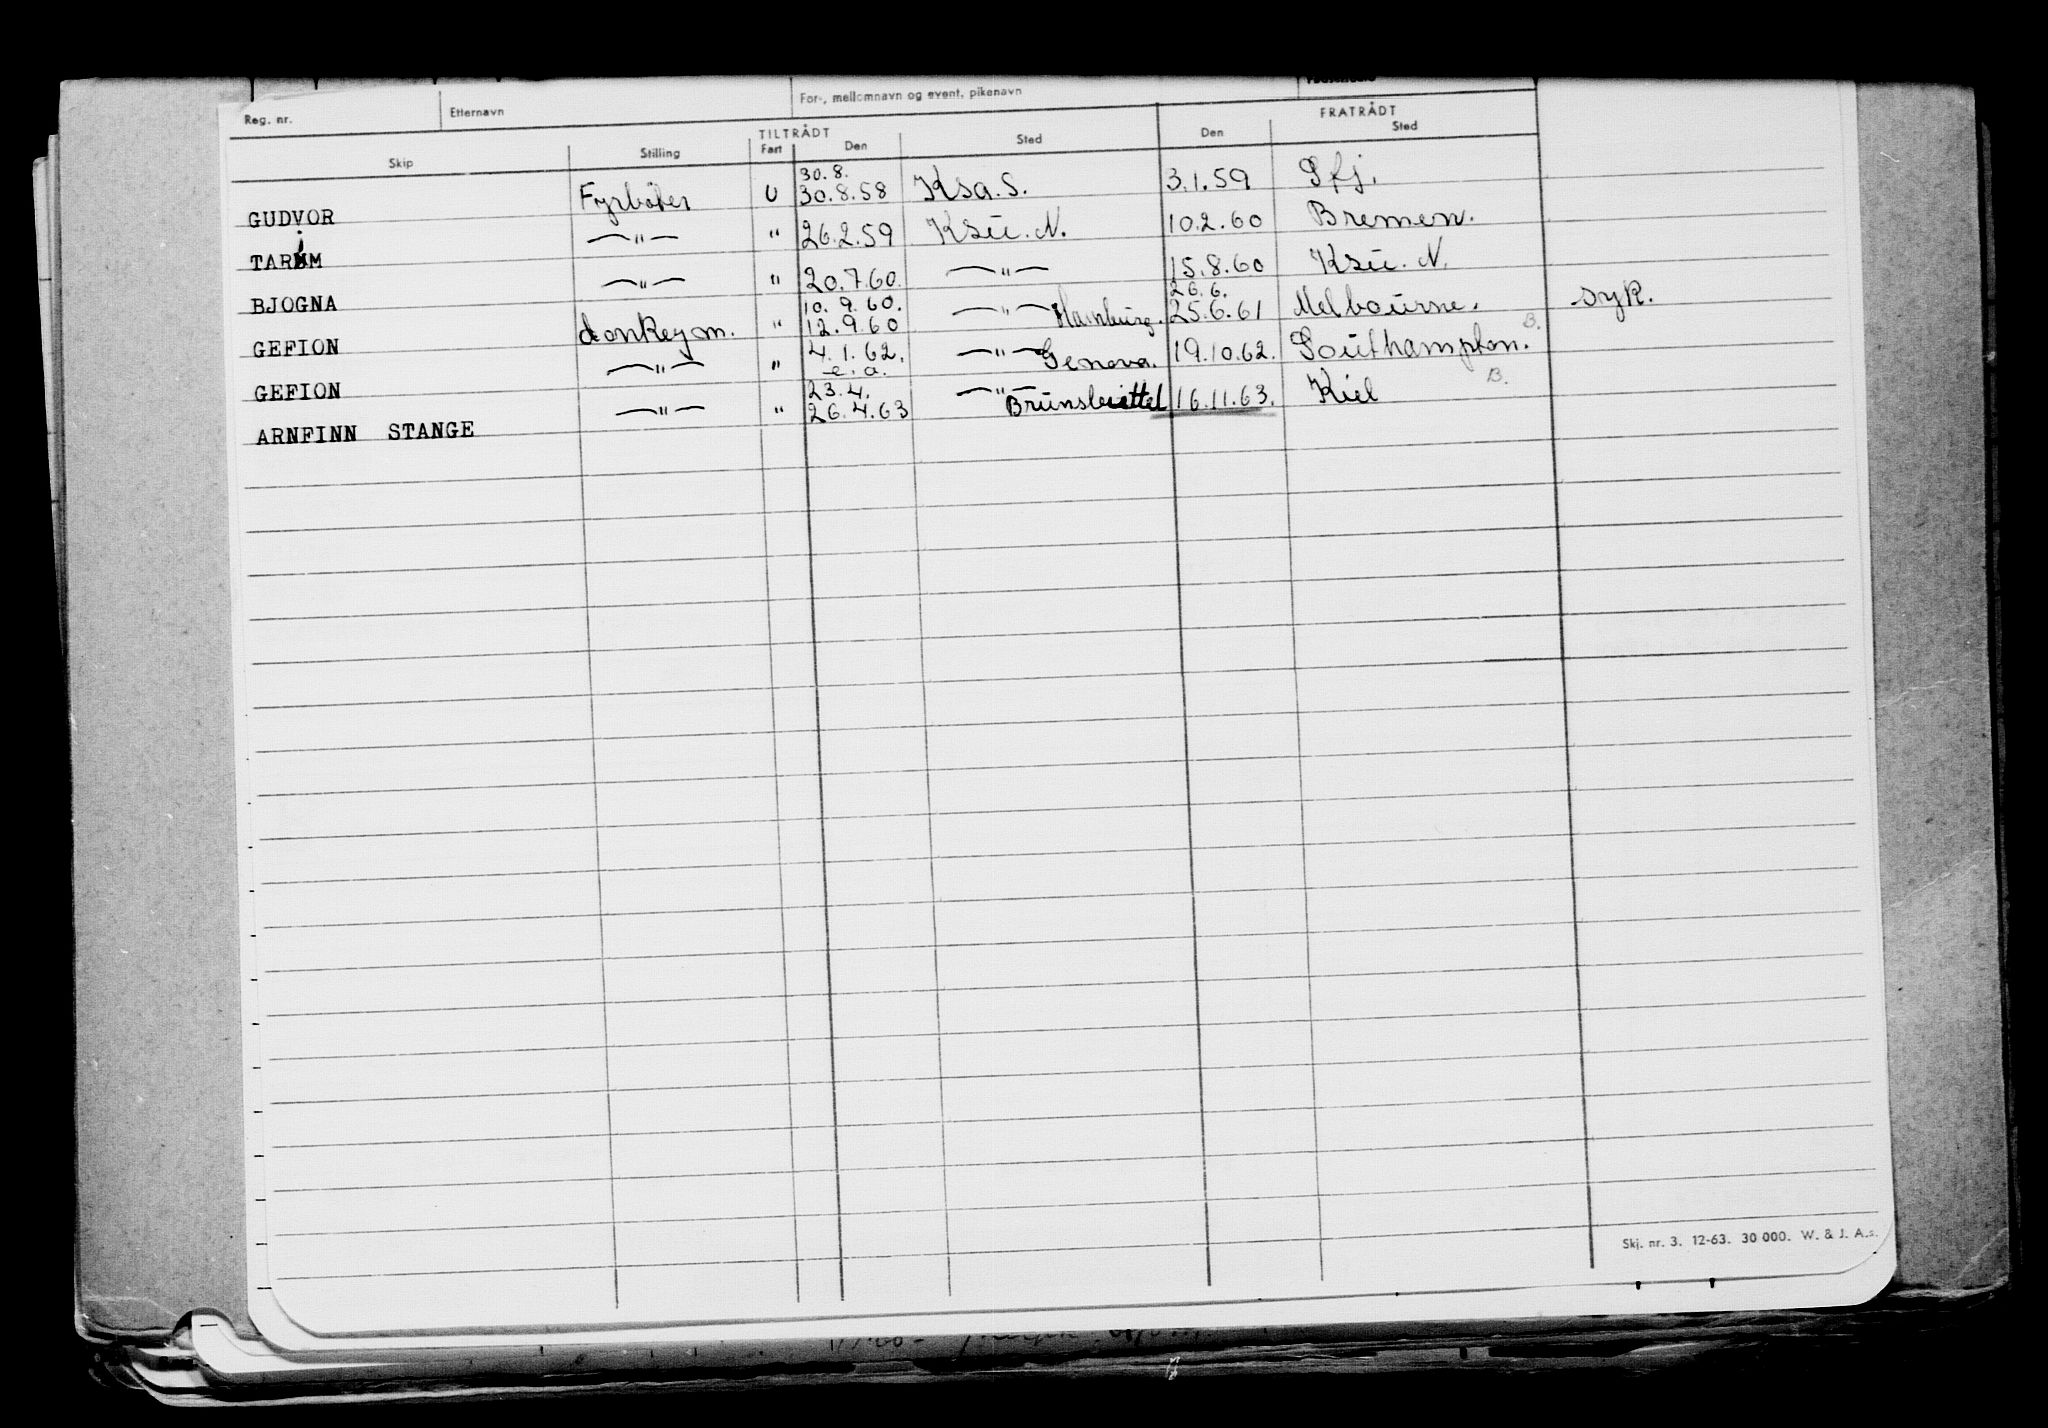 Reg. nr. Etternavn For-, mellomnavn og event. pikenavn
TILTRÅDT FRATRÅDT
Skip Stilling Fart Den Sted Den Sted
30.8.
GUDVOR Fyrbøter U 30.8.58 Ksa.S. 3.1.59 Sfj.
TARIM —"— " 26.2.59 Ksu.N. 10.2.60 Bremen.
BJOGNA —"— " 20.7.60. —"— 15.8.60 Ksu.N.
10.9.60. 26.6.
GEFION donkeym. " 12.9.60 —"— Hamburg. 25.6.61 Melbourne. syk.
GEFION —"— " 4.1.62. —"— Genova. 19.10.62. Southampton. B.
e.a.
23.4.
ARNFINN STANGE —"— " 26.4.63 —"— Brunsbüttel 16.11.63. Kiel B.
Skj. nr. 3. 12-63. 30 000. W. & J. A.s.